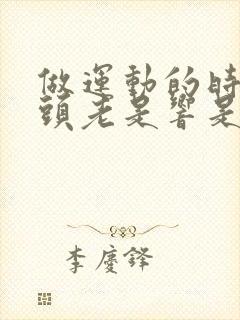 做運動的時
頭老是響是
李慶鋒